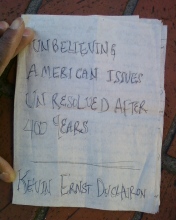 UNBELIEVING
AMERICAN ISSUES
UN RESOLVED AFTER
400 YEARS
KEVIN ERNST DUCLAIRON